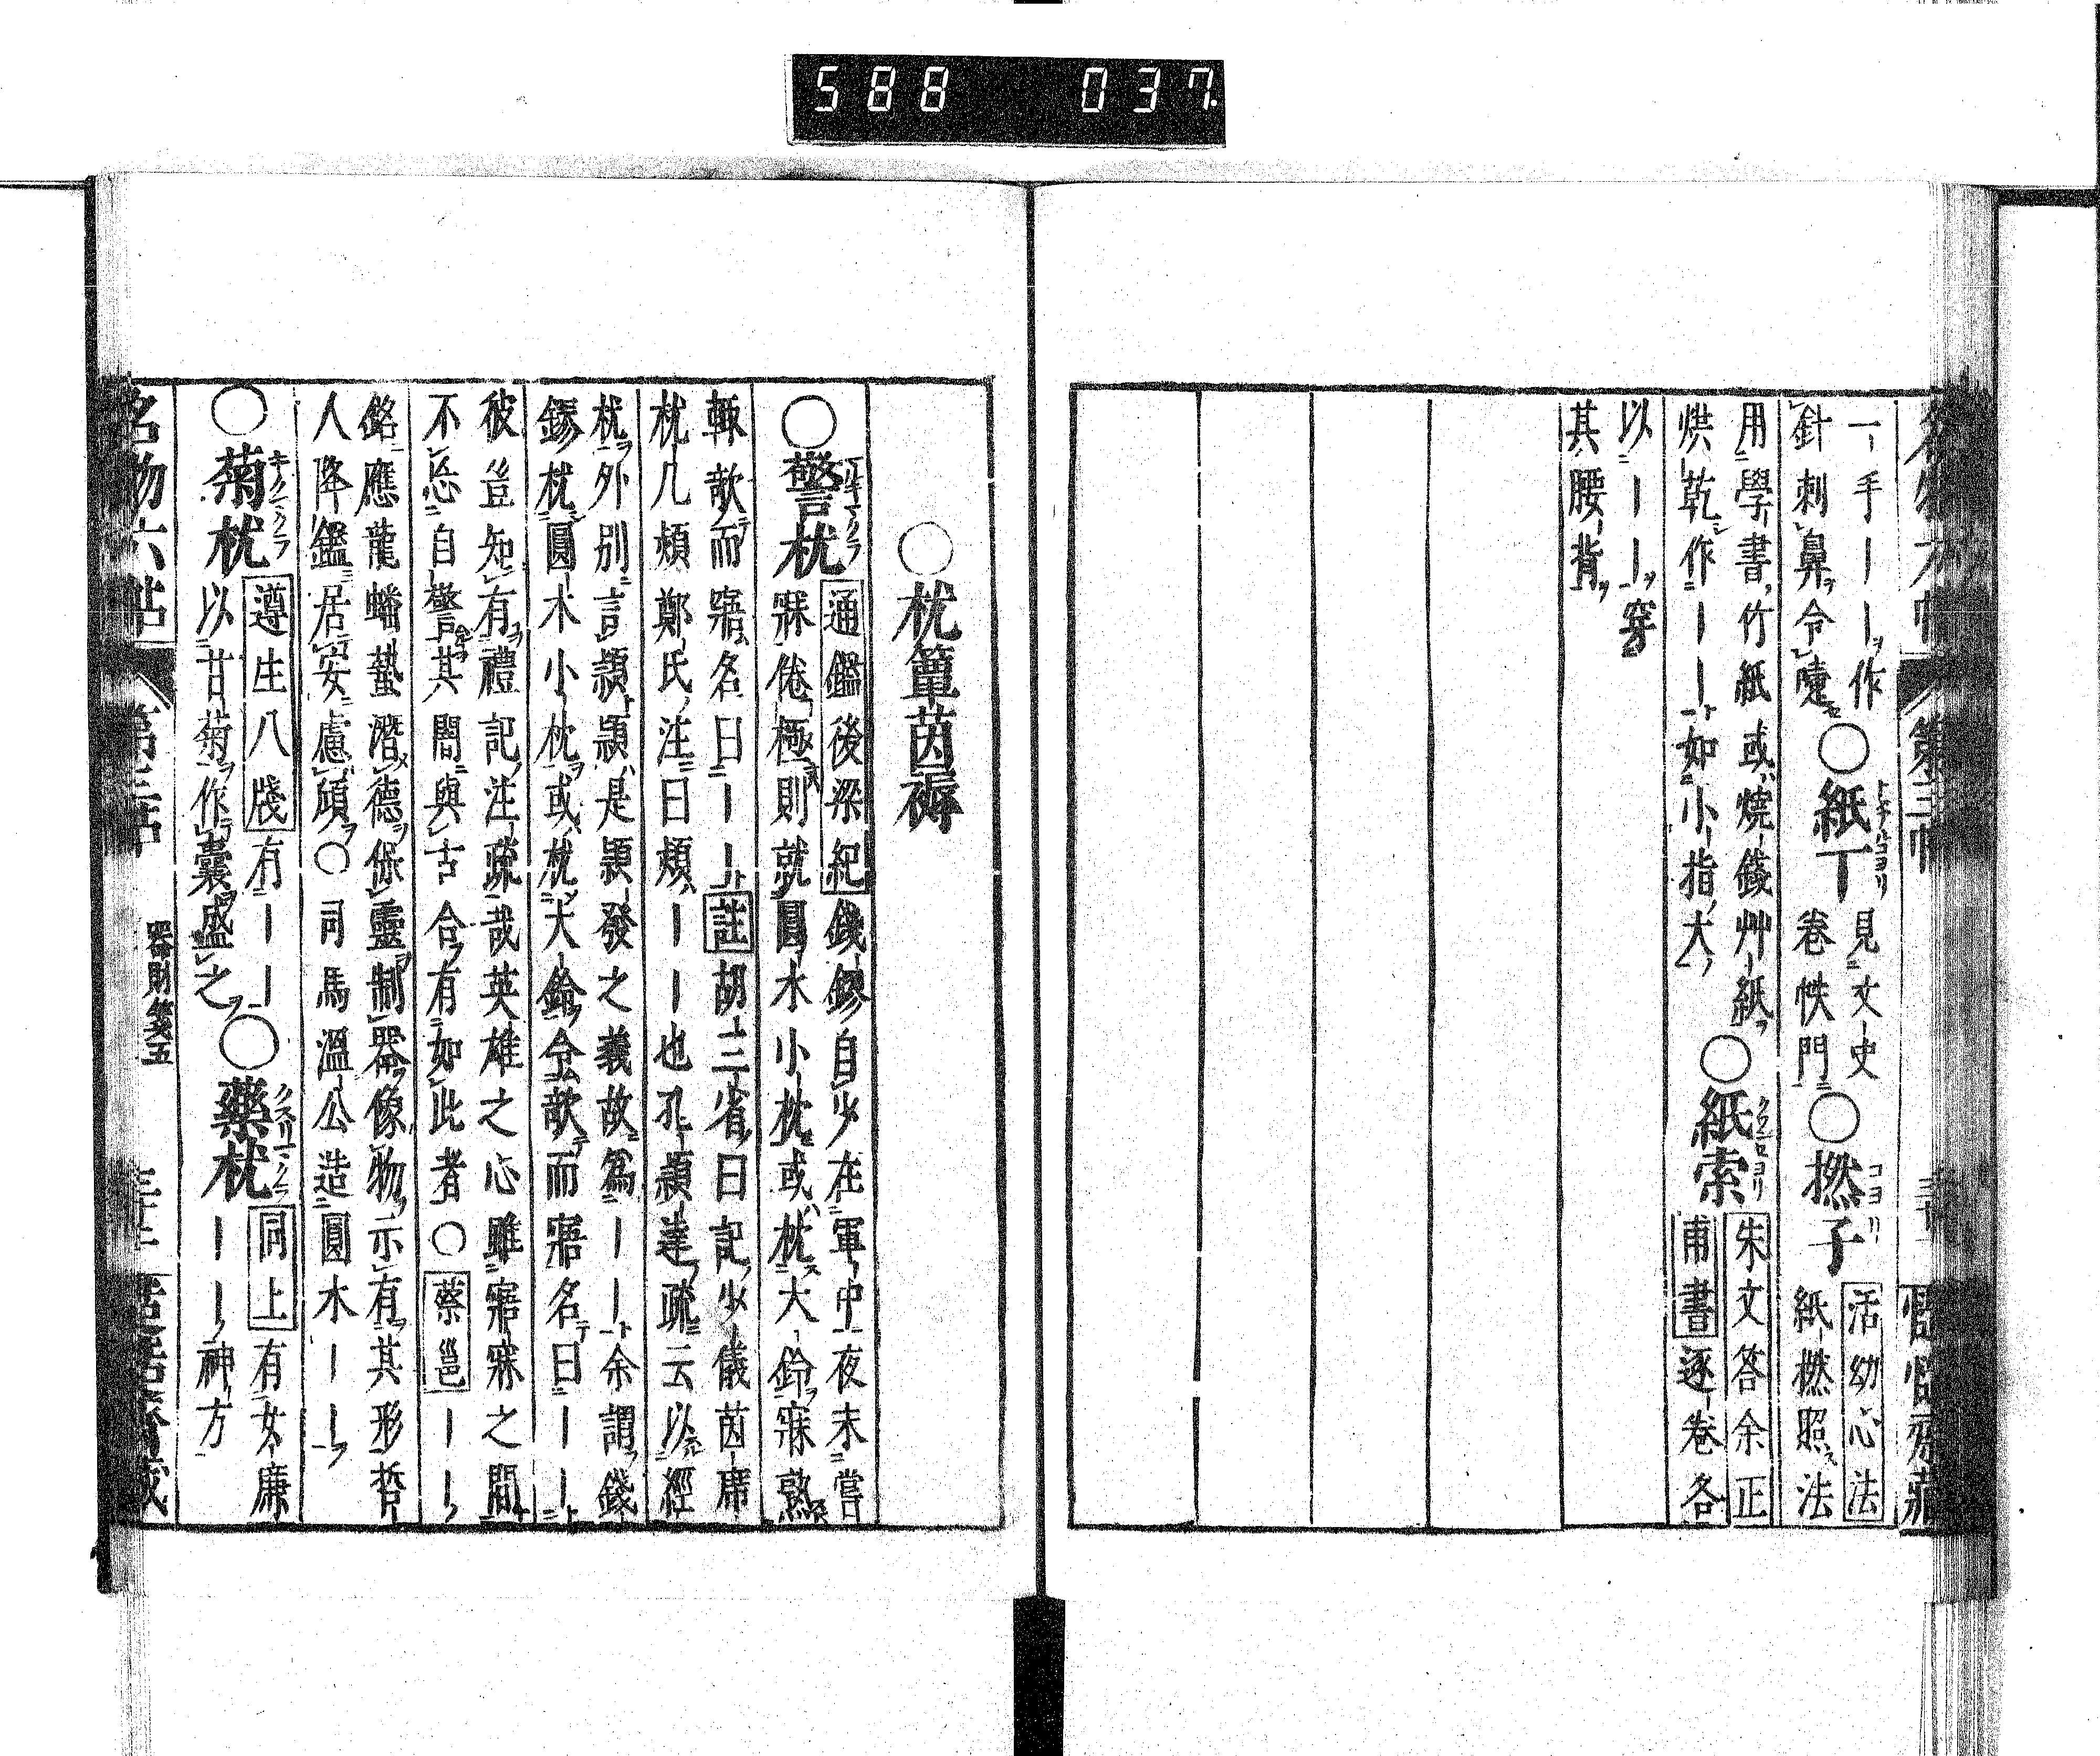 588 037
一手丨丨ヲ作
針刺鼻ヲ令嚏セ
○紙丁
見文史
卷帙門ニ
○撚子
コヨリ
活幼心法
紙撚照法
用學書竹紙或燒錢艸紙ヲ
烘乾作丨丨ト如小指大
○紙索
朱文答余正
甫書逐卷各
以丨丨ヲ穿
其腰背
○枕簟茵褥
○警枕
通鑑後梁紀錢鏐自少在軍中夜未嘗
寐倦極則就圓木小枕或枕大鈴寐熟
輒欹而寤名曰丨丨註胡三省曰記少儀茵席
枕几熲鄭氏注曰熲丨丨也孔穎達疏云以經
枕外別言熲熲是熲發之義故爲丨丨余謂錢
鏐枕圓木小枕或枕大鈴令欹而寤名曰丨丨
彼豈知有禮記注疏哉英雄之心雖寤寐之間
不忘自警其闇與古合有如此者○蔡邕丨丨
銘應龍蟠蟄潛德保靈制器像物示有其形哲
人降鑑居安慮頃○司馬溫公造圓木丨丨
○菊枕
キクノマクラ
遵生八牋有丨丨
以甘菊作囊盛之
○藥枕
クスリマクラ
同上有女廉
丨丨神方
名物六帖
第三帖
器財箋五